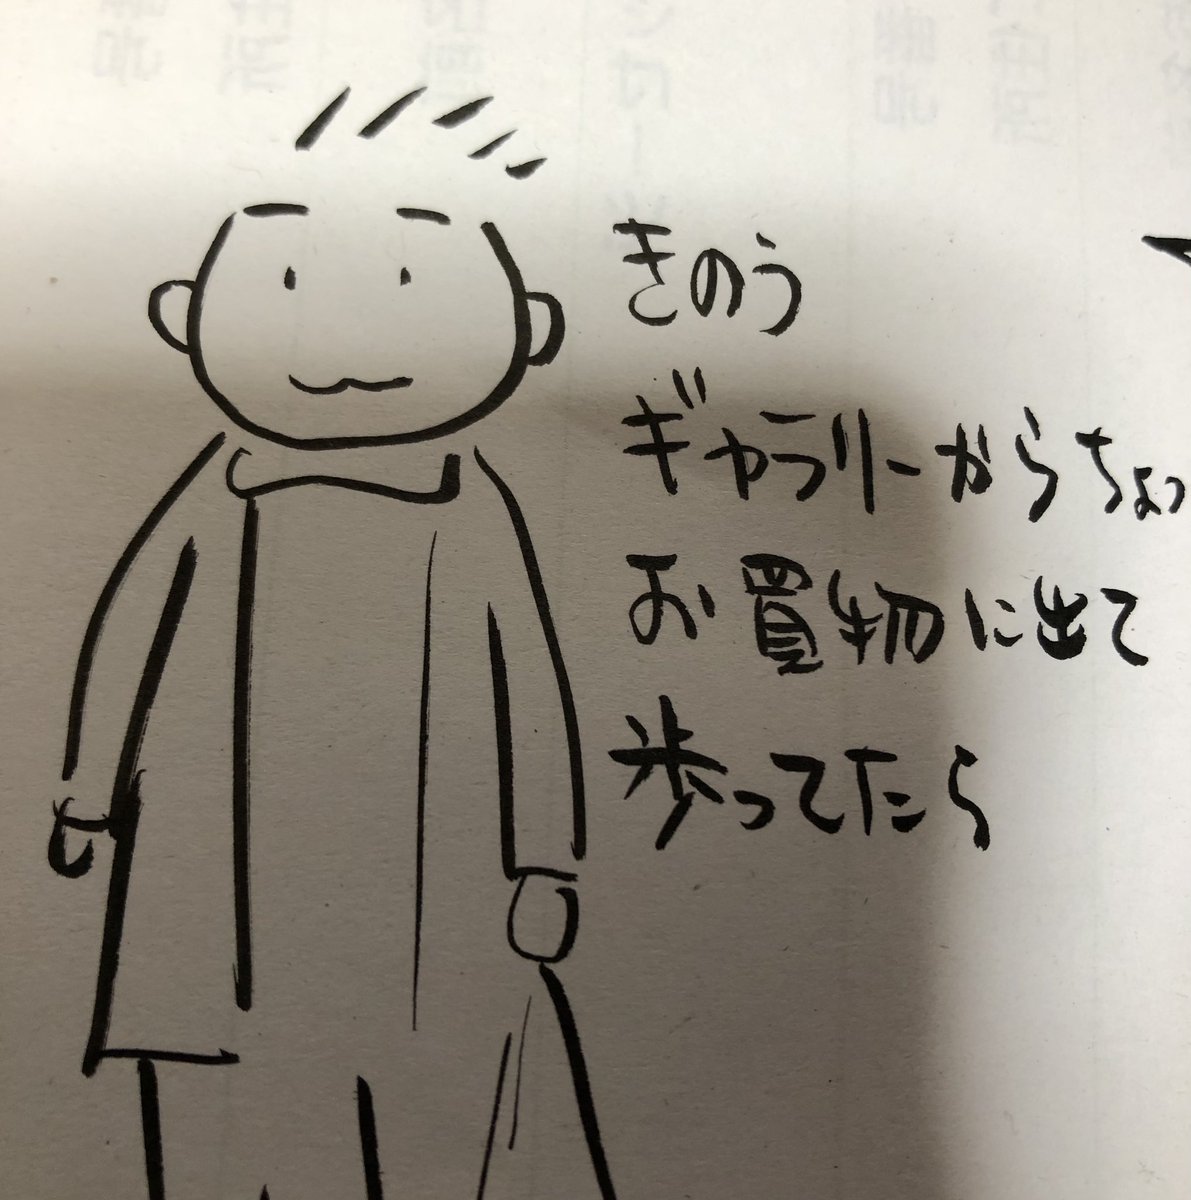 きのう
ギャラリーからちょっ
お買物に出て
歩ってたら